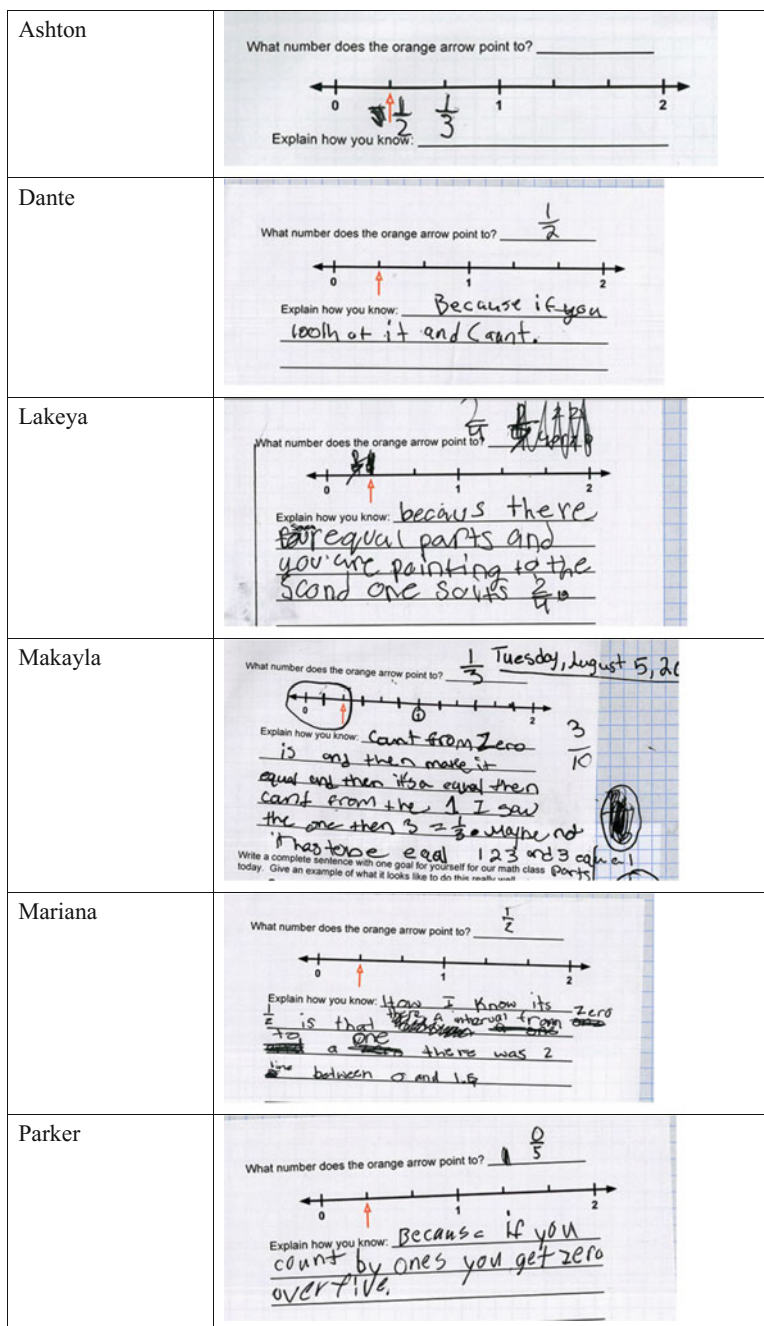 Ashton
What number does the orange arrow point to?
0 1 2
1/2 1/3
Explain how you know:
Dante
What number does the orange arrow point to? 1/2
0 1 2
Explain how you know: Because if you
look at it and Count.
Lakeya
2/4
What number does the orange arrow point to?
0 1 2
Explain how you know: becaus there
equal parts and
you are pointing to the
Scond one So its 2/4
Makayla
1/3 Tuesday, August 5, 20
What number does the orange arrow point to?
0 1 2
3/10
Explain how you know: Count from Zero
is and then make it
equal and then its a equal then
cant from the 1 I saw
the one then 3 = 1/3. Maybe not
it has to be eqal 1 2 3 and 3 equal
Write a complete sentence with one goal for yourself for our math class parts
today. Give an example of what it looks like to do this really well
Mariana
1/2
What number does the orange arrow point to?
0 1 2
Explain how you know: How I Know its
1/2 is that there a interval from zero
to a one there was 2
line between 0 and 1.
Parker
0/5
What number does the orange arrow point to?
0 1 2
Explain how you know: Because if you
count by ones you get zero
over five.